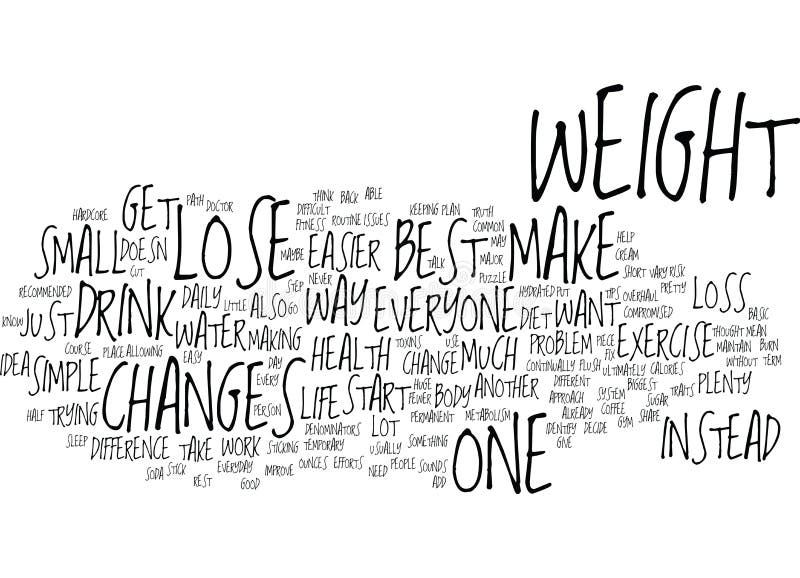 WEIGHT
HARDCORE GET PATH DOCTOR THINK BACK ABLE
LOSE DIFFICULT KEEPING PLAN TRUTH
SMALL FITNESS ROUTINE ISSUES COMMON HELP
DOESN MAYBE EASIER BEST MAY MAKE CREAM
CUT TALK MAJOR SHORT VARY RISK
RECOMMENDED STEP NEVER PUZZLE PRETTY
DRINK DAILY LITTLE ALSO GO WAY EVERYONE HYDRATED PUT TIPS OVERHAUL LOSS
KNOW JUST WATER MAKING DIET WANT COMPROMISED BASIC
COURSE PLACE ALLOWING TOXINS USE PROBLEM PIECE EXERCISE THOUGHT MEAN
IDEA SIMPLE EASY DAY HEALTH CHANGE MUCH FIX MAINTAIN BURN
CHANGES EVERY CONTINUALLY FLUSH ULTIMATELY CALORIES WITHOUT TERM
HUGE BODY ANOTHER DIFFERENT SYSTEM BIGGEST TRAITS PLENTY
HALF TRYING PERSON LIFE START FEWER APPROACH COFFEE SUGAR
PERMANENT METABOLISM ALREADY GYM SHAPE
SLEEP DIFFERENCE TAKE WORK STICKING DENOMINATORS LOT SOMETHING IDENTIFY DECIDE INSTEAD
TEMPORARY USUALLY ONE GIVE
SODA STICK EVERYDAY IMPROVE OUNCES EFFORTS NEED PEOPLE SOUNDS
REST GOOD ADD